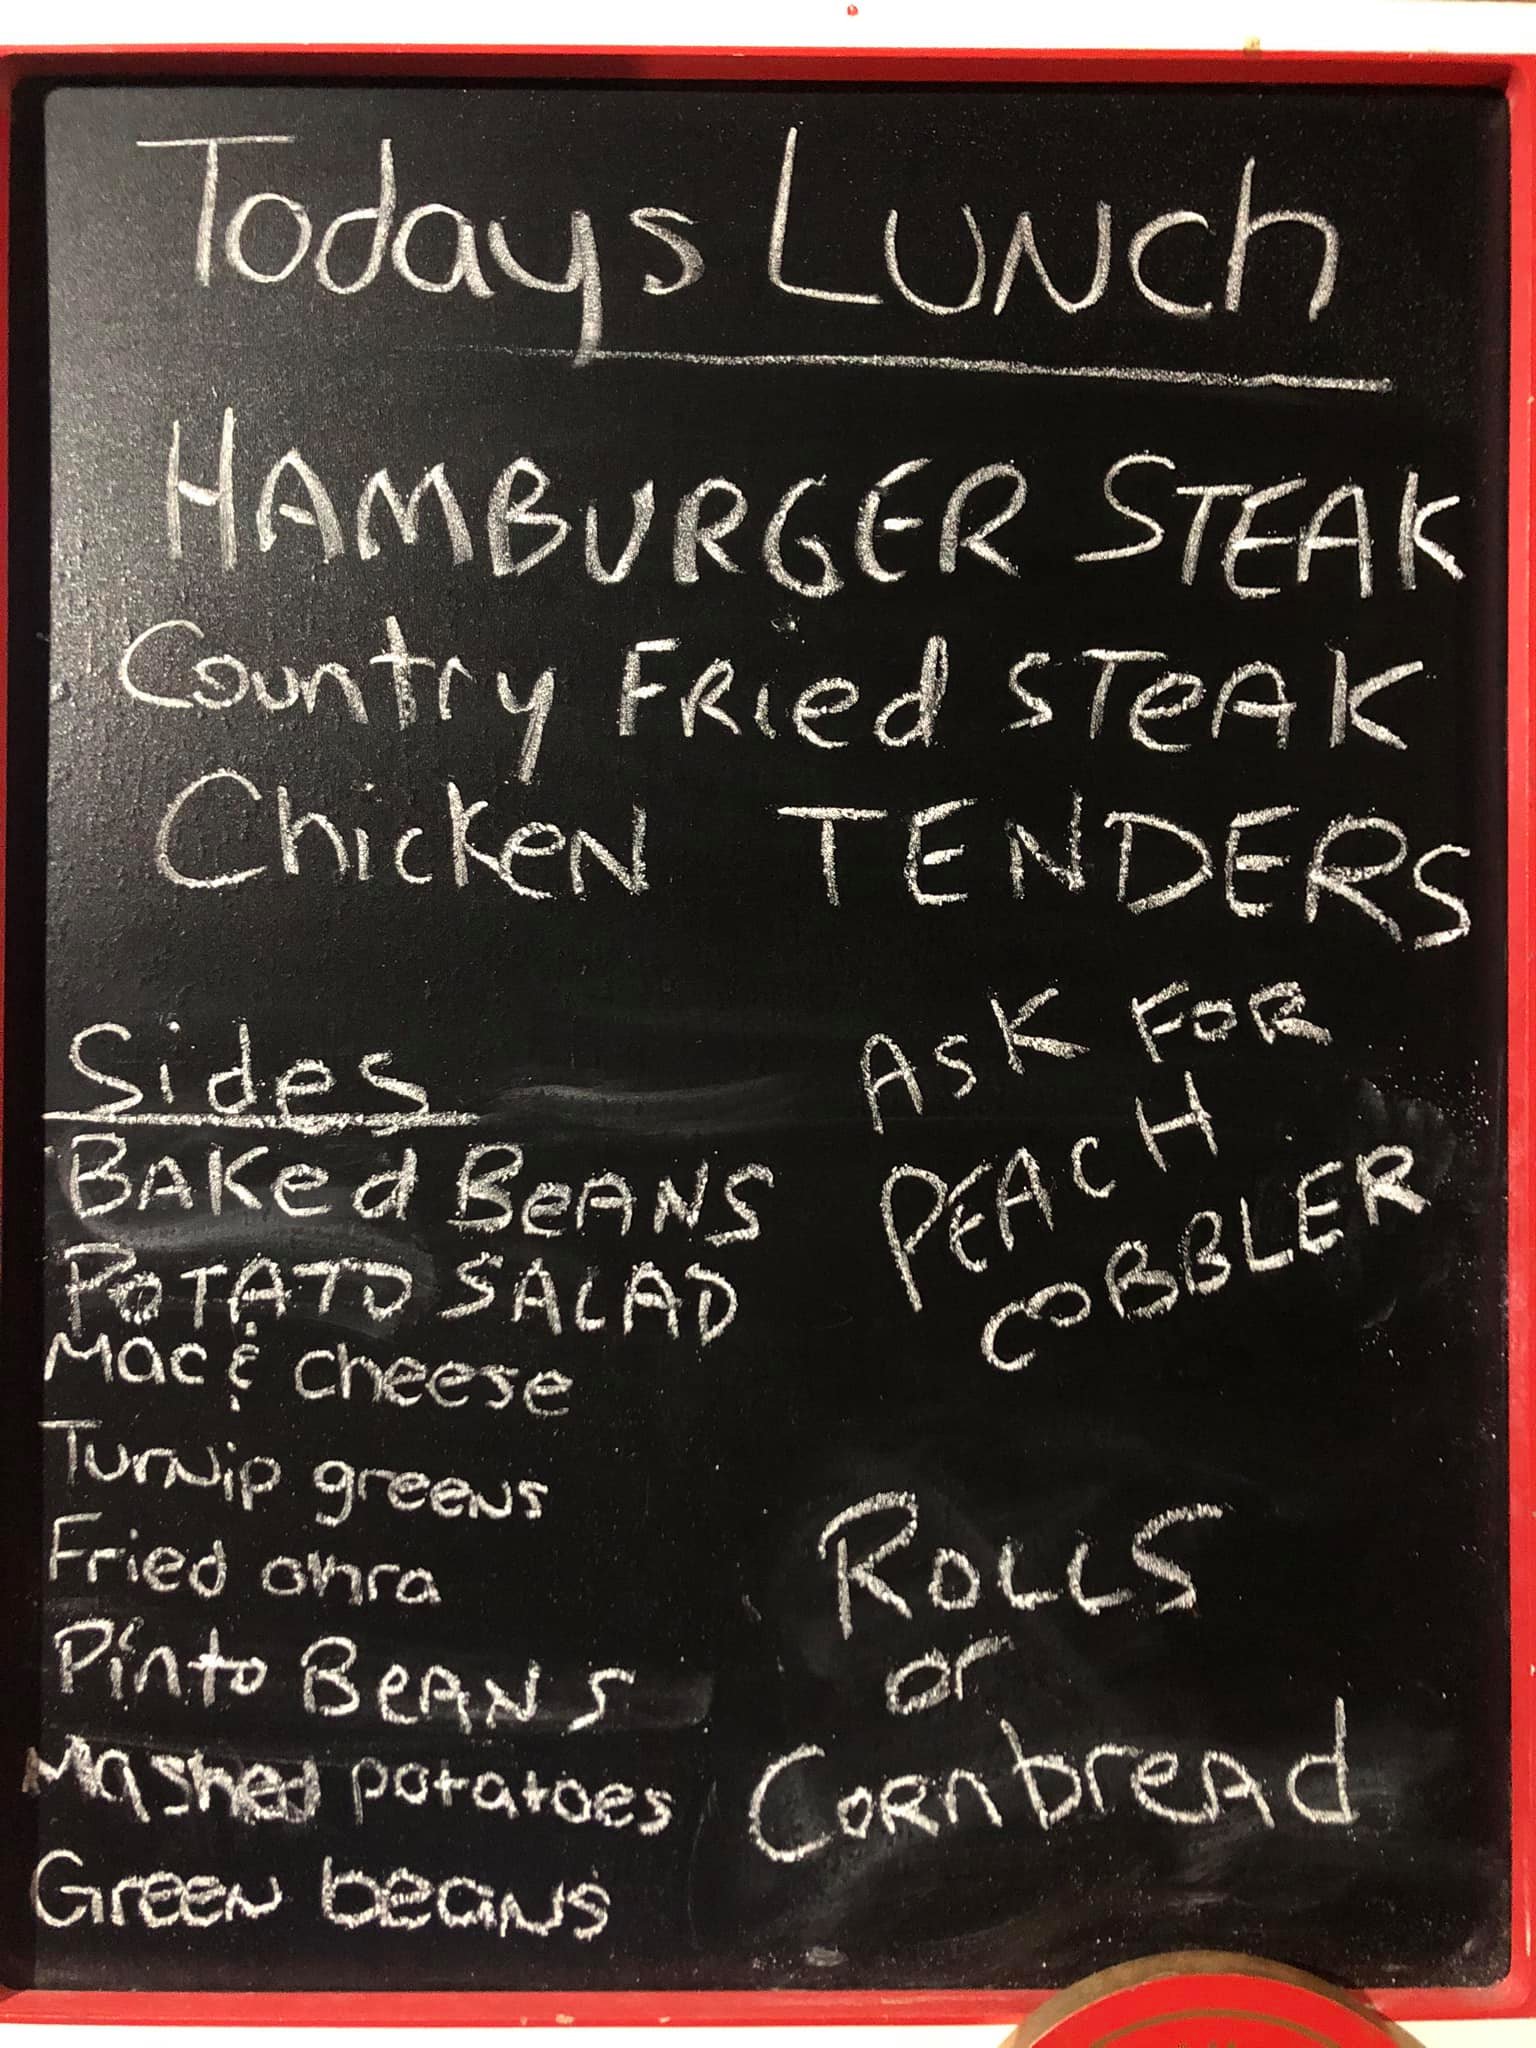 Todays Lunch
HAMBURGER STEAK
Country FRied STeAK
Chicken TENDERS
Sides
BAKed BeANS
POTATO SALAD
Mac & cheese
Turnip greens
Fried okra
Pinto BeANS
Mashed potatoes
Green beans
ASK FOR
PEACH
COBBLER
ROLLS
or
CornbreAd